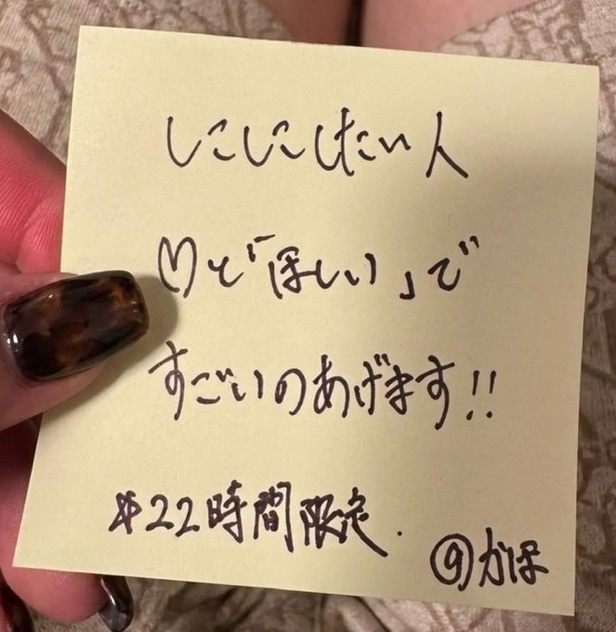 しこしこしたい人
♡と「ほしい」で
すごいのあげます!!
※22時間限定.
@かほ